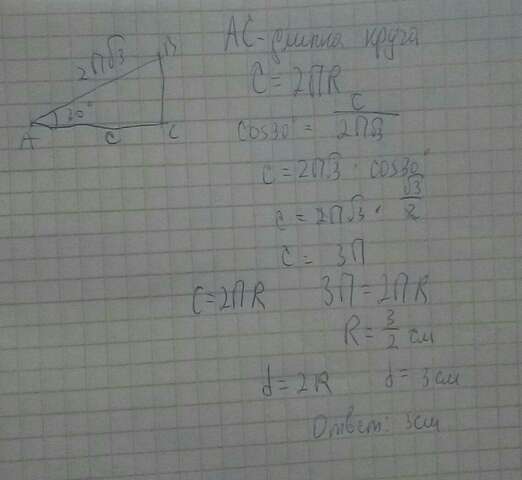 B
2П√3
30°
A
C
C
AC - длинна круга
C = 2ПR
cos30° = C / 2П√3
C = 2П√3 · cos30°
C = 2П√3 · √3/2
C = 3П
C = 2ПR    3П = 2ПR
R = 3/2 см
d = 2R    d = 3см
Ответ: 3см